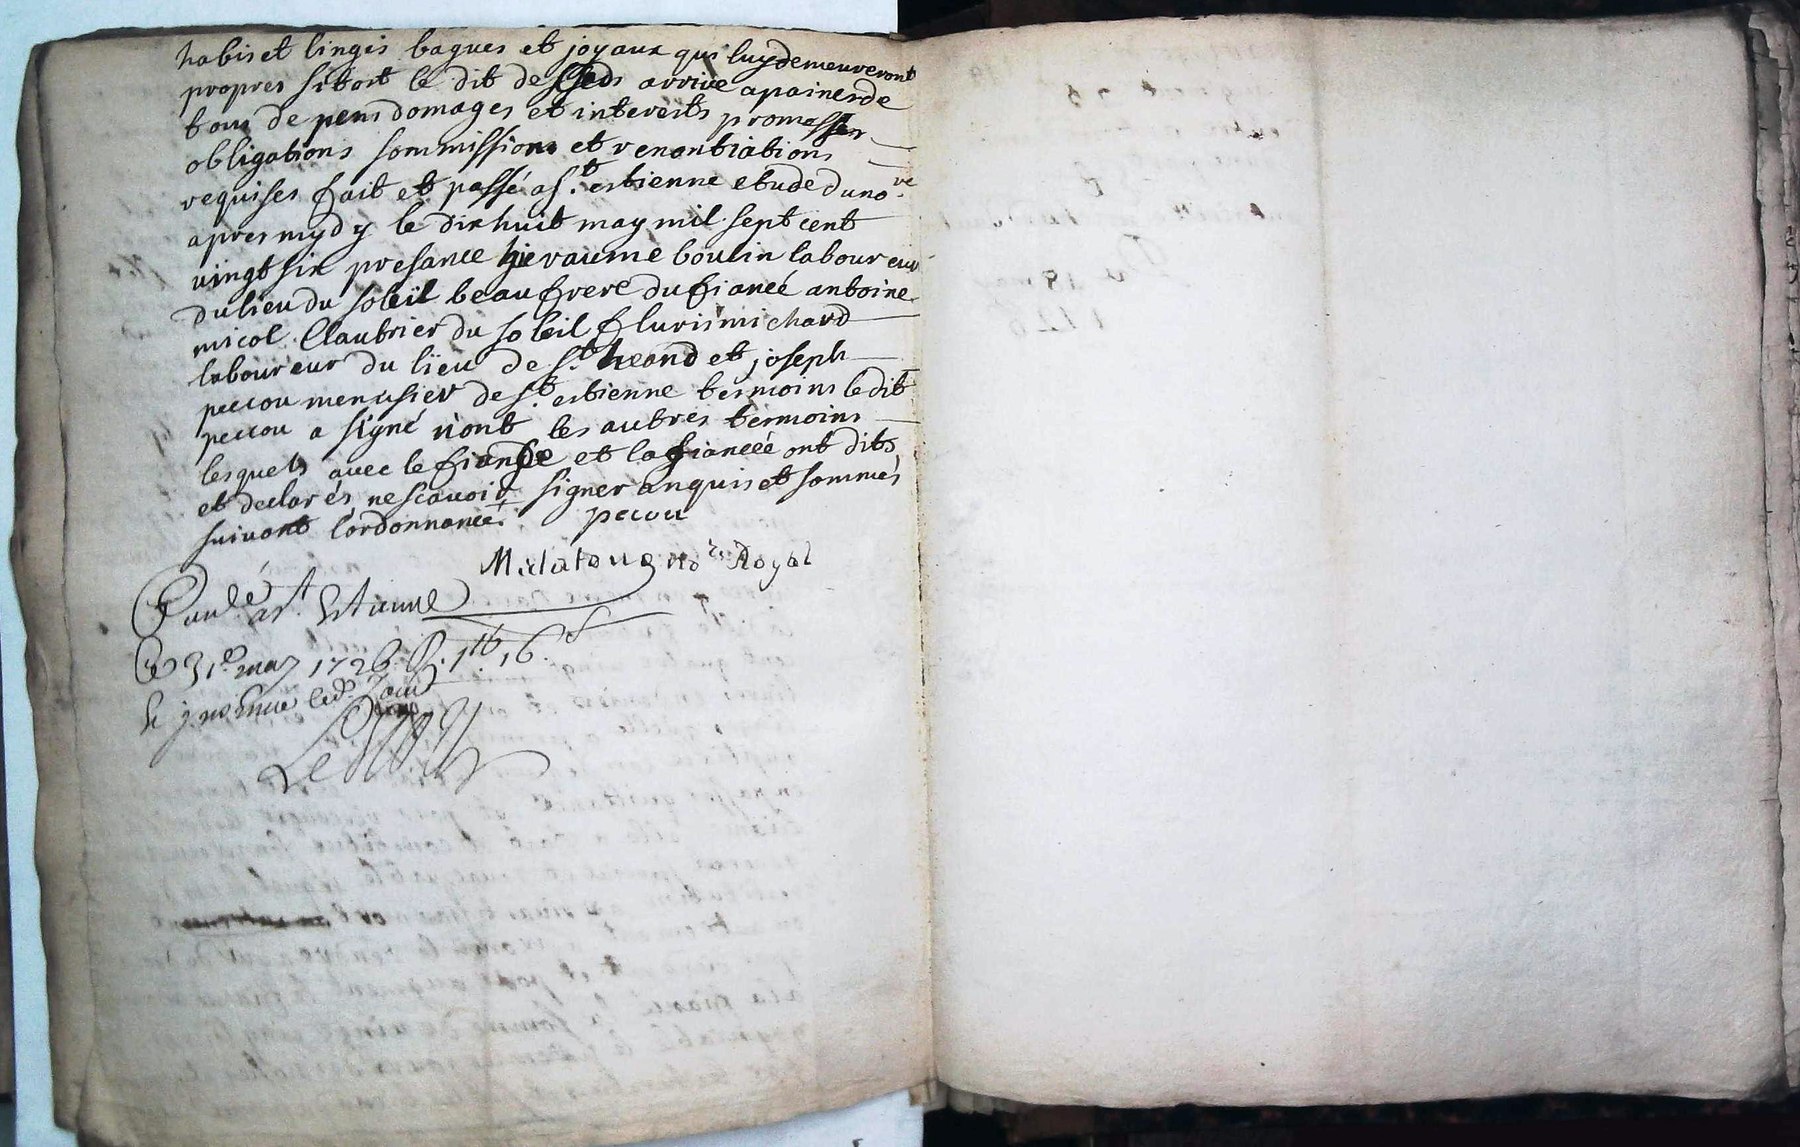 habis et linges bagues et joyaux qui luy demeureront
propres sitost le dit desseds arrive a paines de
tous depens domages et interests promesses
obligations sommissions et renontiations
requises fait et passé a st. estienne etude du nore.
apres mydy le dix huit may mil sept cent
vingt six presance hieraume boulin laboureur
du lieu du soleil beaufrere du fiancé antoine
micol Claubrier du soleil fluris michard
laboureur du lieu de st. heand et joseph
pecou menusier de st. estienne tesmoins le dit
pecou a signé n'ont les autres tesmoins
lesquels avec le fiancé et la fianceé ont dits
et declarés ne scavoir signer anquis et sommés
suivant l'ordonnance. pecou
No re Royal
a st. Estienne
Ce 31e may 1726. R. 1tt 16 s